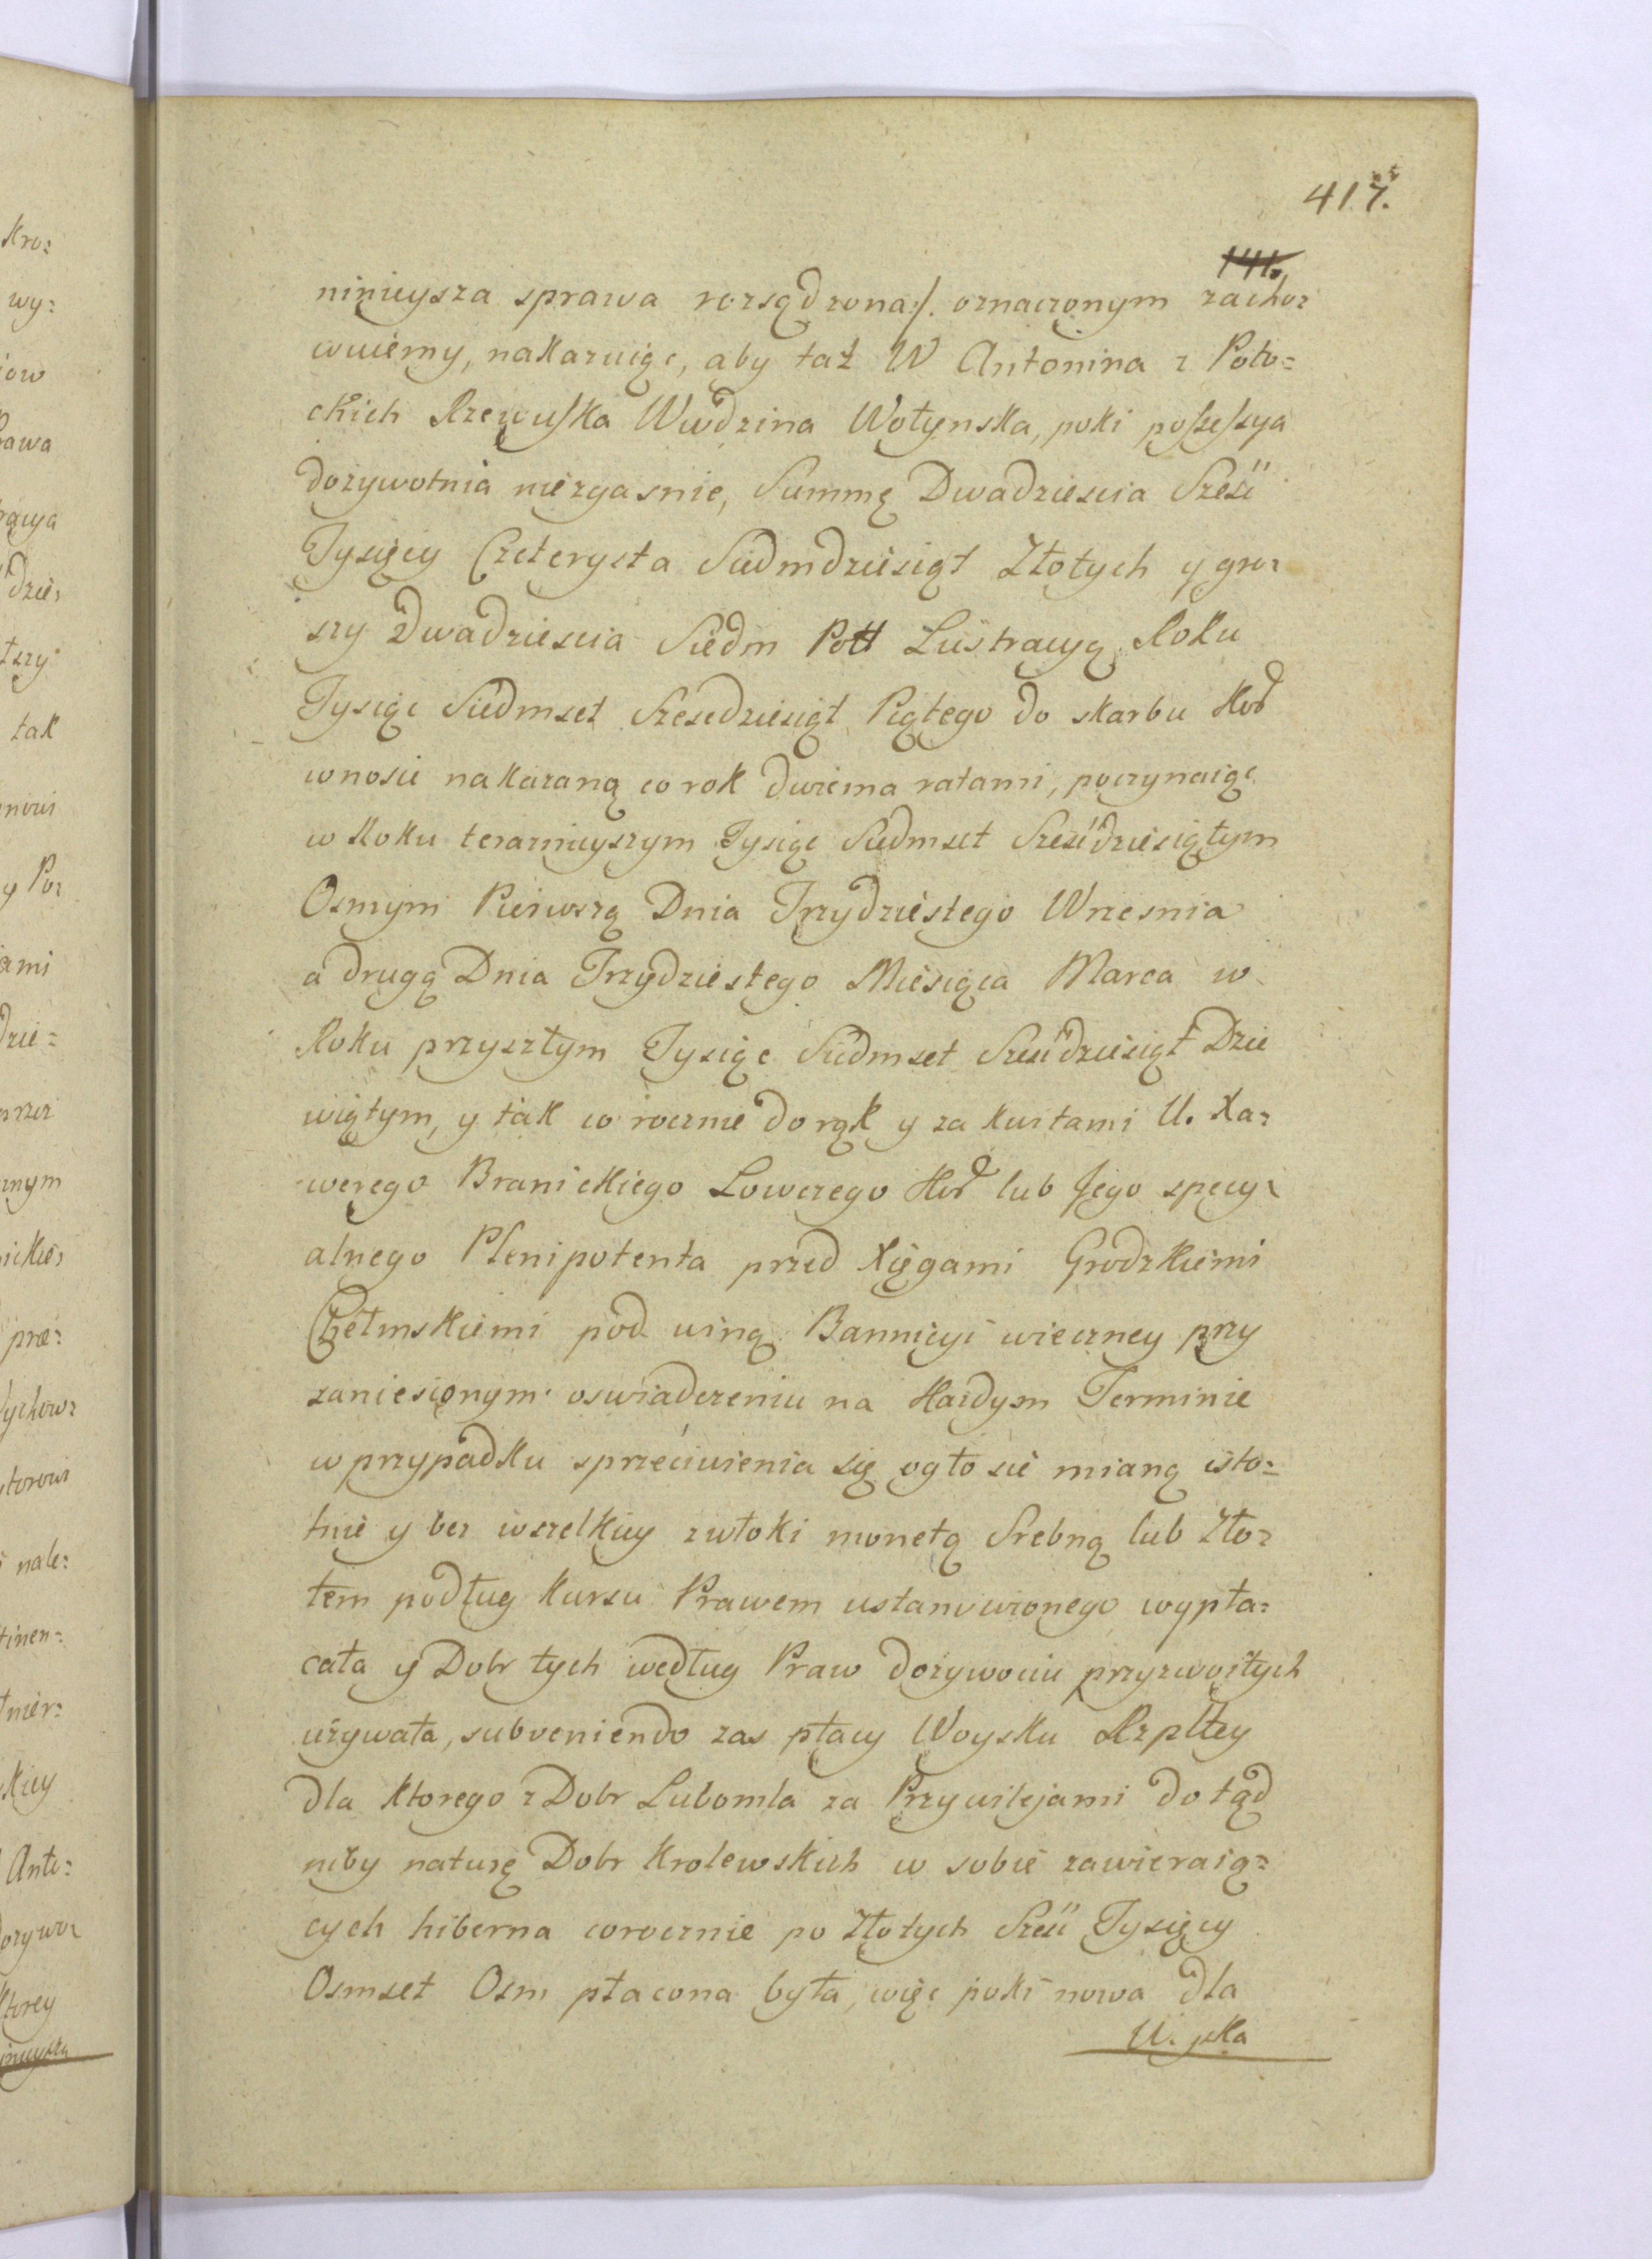 417.
ninieysza sprawa rozsądzona/. oznaczonym zacho=
wuiemy, nakazuiąc, aby taż W Antonina z Poto=
ckich Rzewuska Wwdzina Wołynska, poki possessya
dożywotnia niezgasnie, Summę Dwadziescia Sześć
Tysięcy Czterysta Siedmdziesiąt Złotych y gro=
szy Dwadziescia Siedm Pol Lustracyą Roku
Tysiąc Siedmset Szescdziesiąt Piątego do skarbu Kor
wnosić nakazaną co rok dwiema ratami, poczynaiąc
w Roku teraznieyszym Tysiąc Siedmset Sześćdziesiątym
Osmym Pierwszą Dnia Trzydziestego Wrzesnia
a drugą Dnia Trzydziestego Miesiąca Marca w
Roku przyszłym Tysiąc Siedmset Sześćdziesiąt Dzie
wiątym, y tak co rocznie do rąk y za kwitami U. Xa=
werego Branickiego Łowczego Kor lub Jego specy=
alnego Plenipotenta przed Xięgami Grodzkiemi
Chełmskiemi pod winą Bannicyi wieczney przy
zaniesionym oswiadczeniu na Każdym Terminie
w przypadku sprzeciwienia się ogłosić mianą isto=
tnie y bez wszelkiey zwłoki monetą Srebną lub Zło=
tem podług Kursu Prawem ustanowionego wypła=
cała y Dobr tych według Praw dożywociu przyzwoitych
używała, subveniendo zas płacy Woysku Rzpltey
dla Ktorego z Dobr Lubomla za Przywilejami do tąd
niby naturę Dobr Krolewskich w sobie zawieraią=
cych hiberna corocznie po Złotych Sześć Tysięcy
Osmset Osm płacona była, więc poki nowa dla